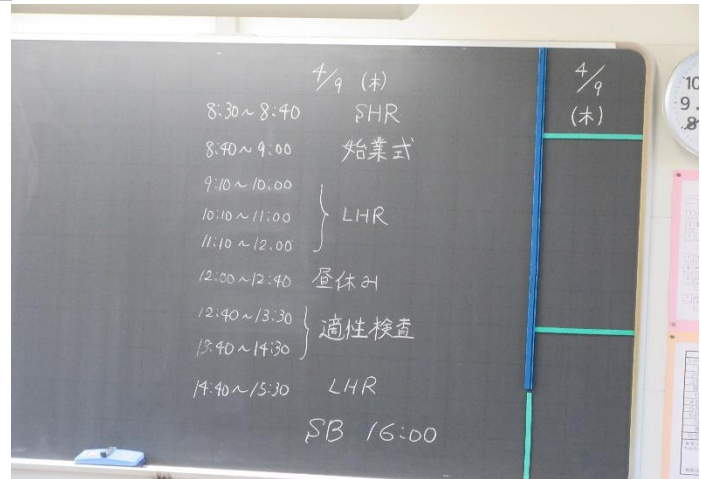 4/9 (木)
8:30~8:40 SHR
8:40~9:00 始業式
9:10~10:00
10:10~11:00 LHR
11:10~12:00
12:00~12:40 昼休み
12:40~13:30 適性検査
13:40~14:30
14:40~15:30 LHR
SB 16:00
4/9
(木)
10
9
8